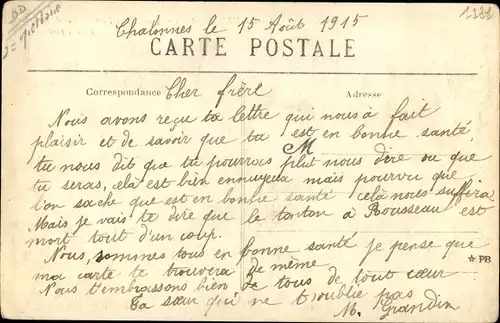 1131
Chalonnes le 15 Août 1915
CARTE POSTALE
Correspondance Cher frère Adresse
Nous avons reçu ta lettre qui nous à fait
plaisir et de savoir que tu est en bonne santé,
M
tu nous dit que tu pourras plut nous dire ou que
tu seras, cela est bien ennuyeux mais pourvu que
l'on sache que est en bonne santé celà nous suffira
Mais je vais te dire que le tonton à Rousseau est
mort tout d'un coup.
Nous, sommes tous en bonne santé je pense que
ma carte te trouvera de même
* PB
Nous t'embrassons bien de tous de tout cœur
Ta sœur qui ne t'oublie pas
M. Grandin